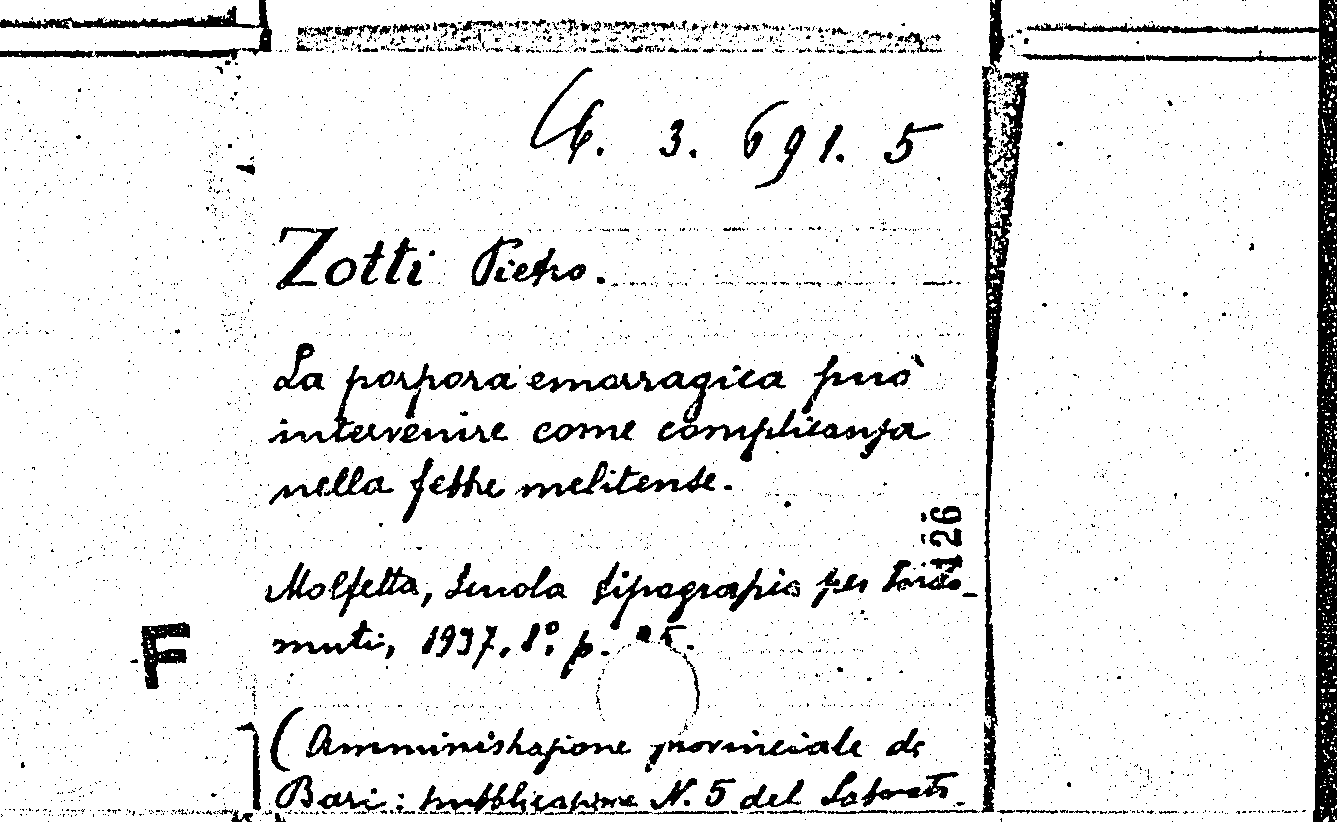 3. 691. 5
Zotti Pietro.
La porpora emorragica può
intervenire come complicanza
nella febbre melitense.
126
Molfetta, Scuola tipografia per sordo-
muti, 1937. 8º. p. 25.
F
(Amministrazione provinciale di
Bari: pubblicazione N. 5 del Laborato-